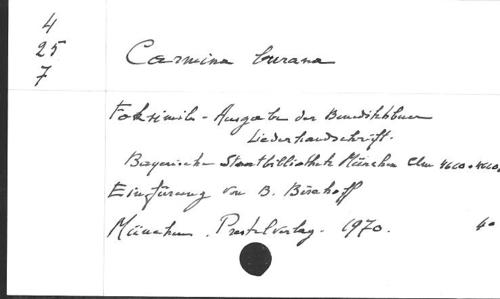 4
25
7
Carmina burana
Faksimile-Ausgabe der Benediktbeurer
Liederhandschrift.
Bayerische Staatbibliothek München Clm 4660 + 4660a
Einführung von B. Bischoff
München. Prestelverlag. 1970. 40